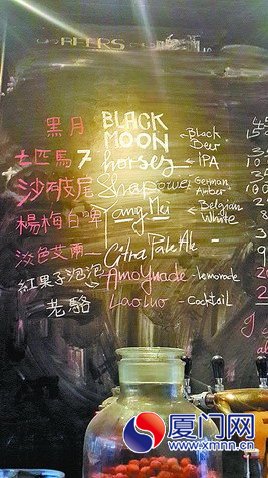 BEERS
黑月 BLACK MOON ← Black Beer
七匹馬 7 horses ← IPA
沙坡尾 Shapowei German Amber
楊梅白啤 Yang Mei ← Belgian White
淡色艾爾 Citra Pale Ale
紅果子泡泡 Amaguade - Lemonade
老駱 Laoluo - Cocktail
厦门网
www.xmnn.cn